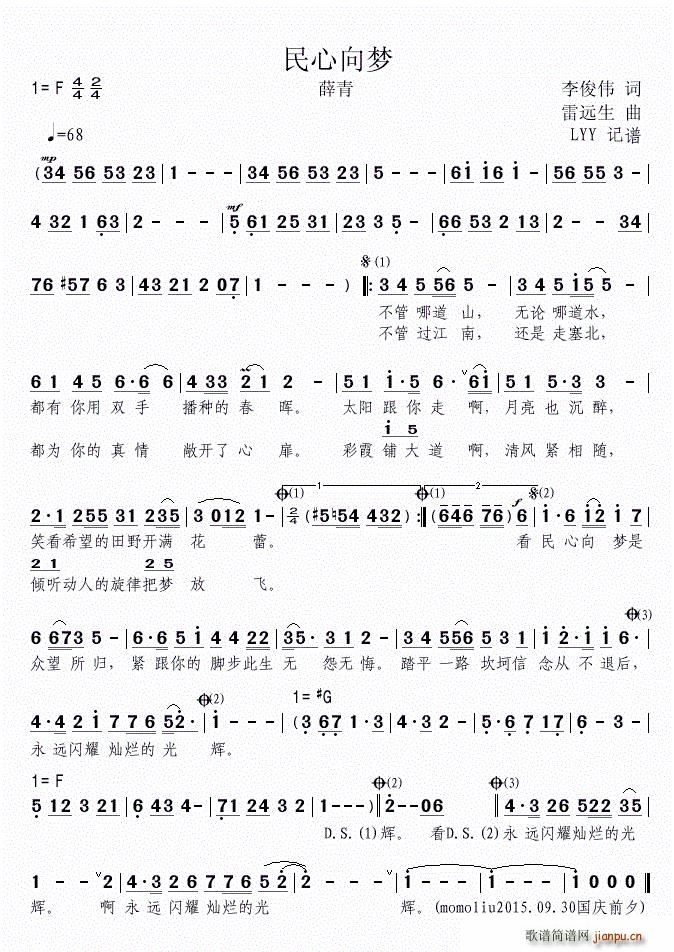 民心向梦
1= F 4/4 2/4 薛青 李俊伟 词
雷远生 曲
♩=68 LYY 记谱
mp
(34 56 53 23 | 1 - - - | 34 56 53 23 | 5 - - - | 61 16 1 - | 56 55 3 - |
mf
4 32 1 63 | 2 - - - | 5 61 25 31 | 23 3 5 - | 66 53 2 13 | 2 - - 34 |
(1)
76 #57 6 3 | 43 21 2 07 | 1 - - - ) ‖: 3 4 5 56 5 - | 3 4 5 15 5 - |
不管 哪道 山, 无论 哪道水,
不管 过江 南, 还是 走塞北,
6 1 4 5 6·6 6 | 4 33 21 2 - | 5 1 1·5 6 - 61 | 5 1 5 6 5 - |
都有 你用 双手 播种的 春 晖。 太阳 跟你走 啊, 月亮 也 沉醉,
1 5
都为 你的 真情 敞开了 心 扉。 彩霞 铺大道 啊, 清风 紧 相随,
(1) 1 (1) 2 f (2)
2·1 255 31 235 | 3 012 1 - | 2/4 (#5♮54 432) :‖ (646 76) 6 | 1·6 6 12 17 |
笑看希望的田野开满 花 蕾。 看 民 心向 梦是
2 1 2 5
倾听动人的旋律把梦 放 飞。
(3)
6 673 5 - | 6·6 5 1 4 4 22 | 35· 3 - | 3 4 556 6 - | 12·1 1 6· |
众望 所归, 紧 跟你的 脚步此生 无 怨无悔。 踏平 一路 坎坷信 念从 不 退后,
(2) 1= #G
4·4 2 1 7 76 52· | 1 - - - | (3 67 1·3 | 4·3 2 - | 5·6 7 17 | 6 - - - |
永 远闪耀 灿烂的 光 辉。
1= F
(2) (2)
5 12 3 2 - | 6 43 4 - | 71 24 3 2 | 1 - - - ) ‖ 2 - - 06 ‖ 4·3 26 522 35 |
D.S.(1)辉。 看D.S.(2)永 远闪耀灿烂的光
1 - - 2 | 4·3 2 6 5 2 2 | 1 - - - | 1 - - - | 1 - - - | 1 0 0 0 ‖
辉。 啊 永 远 闪耀 灿烂的光 辉。(momoliu2015.09.30国庆前夕)
歌谱简谱网
jianpu.cn